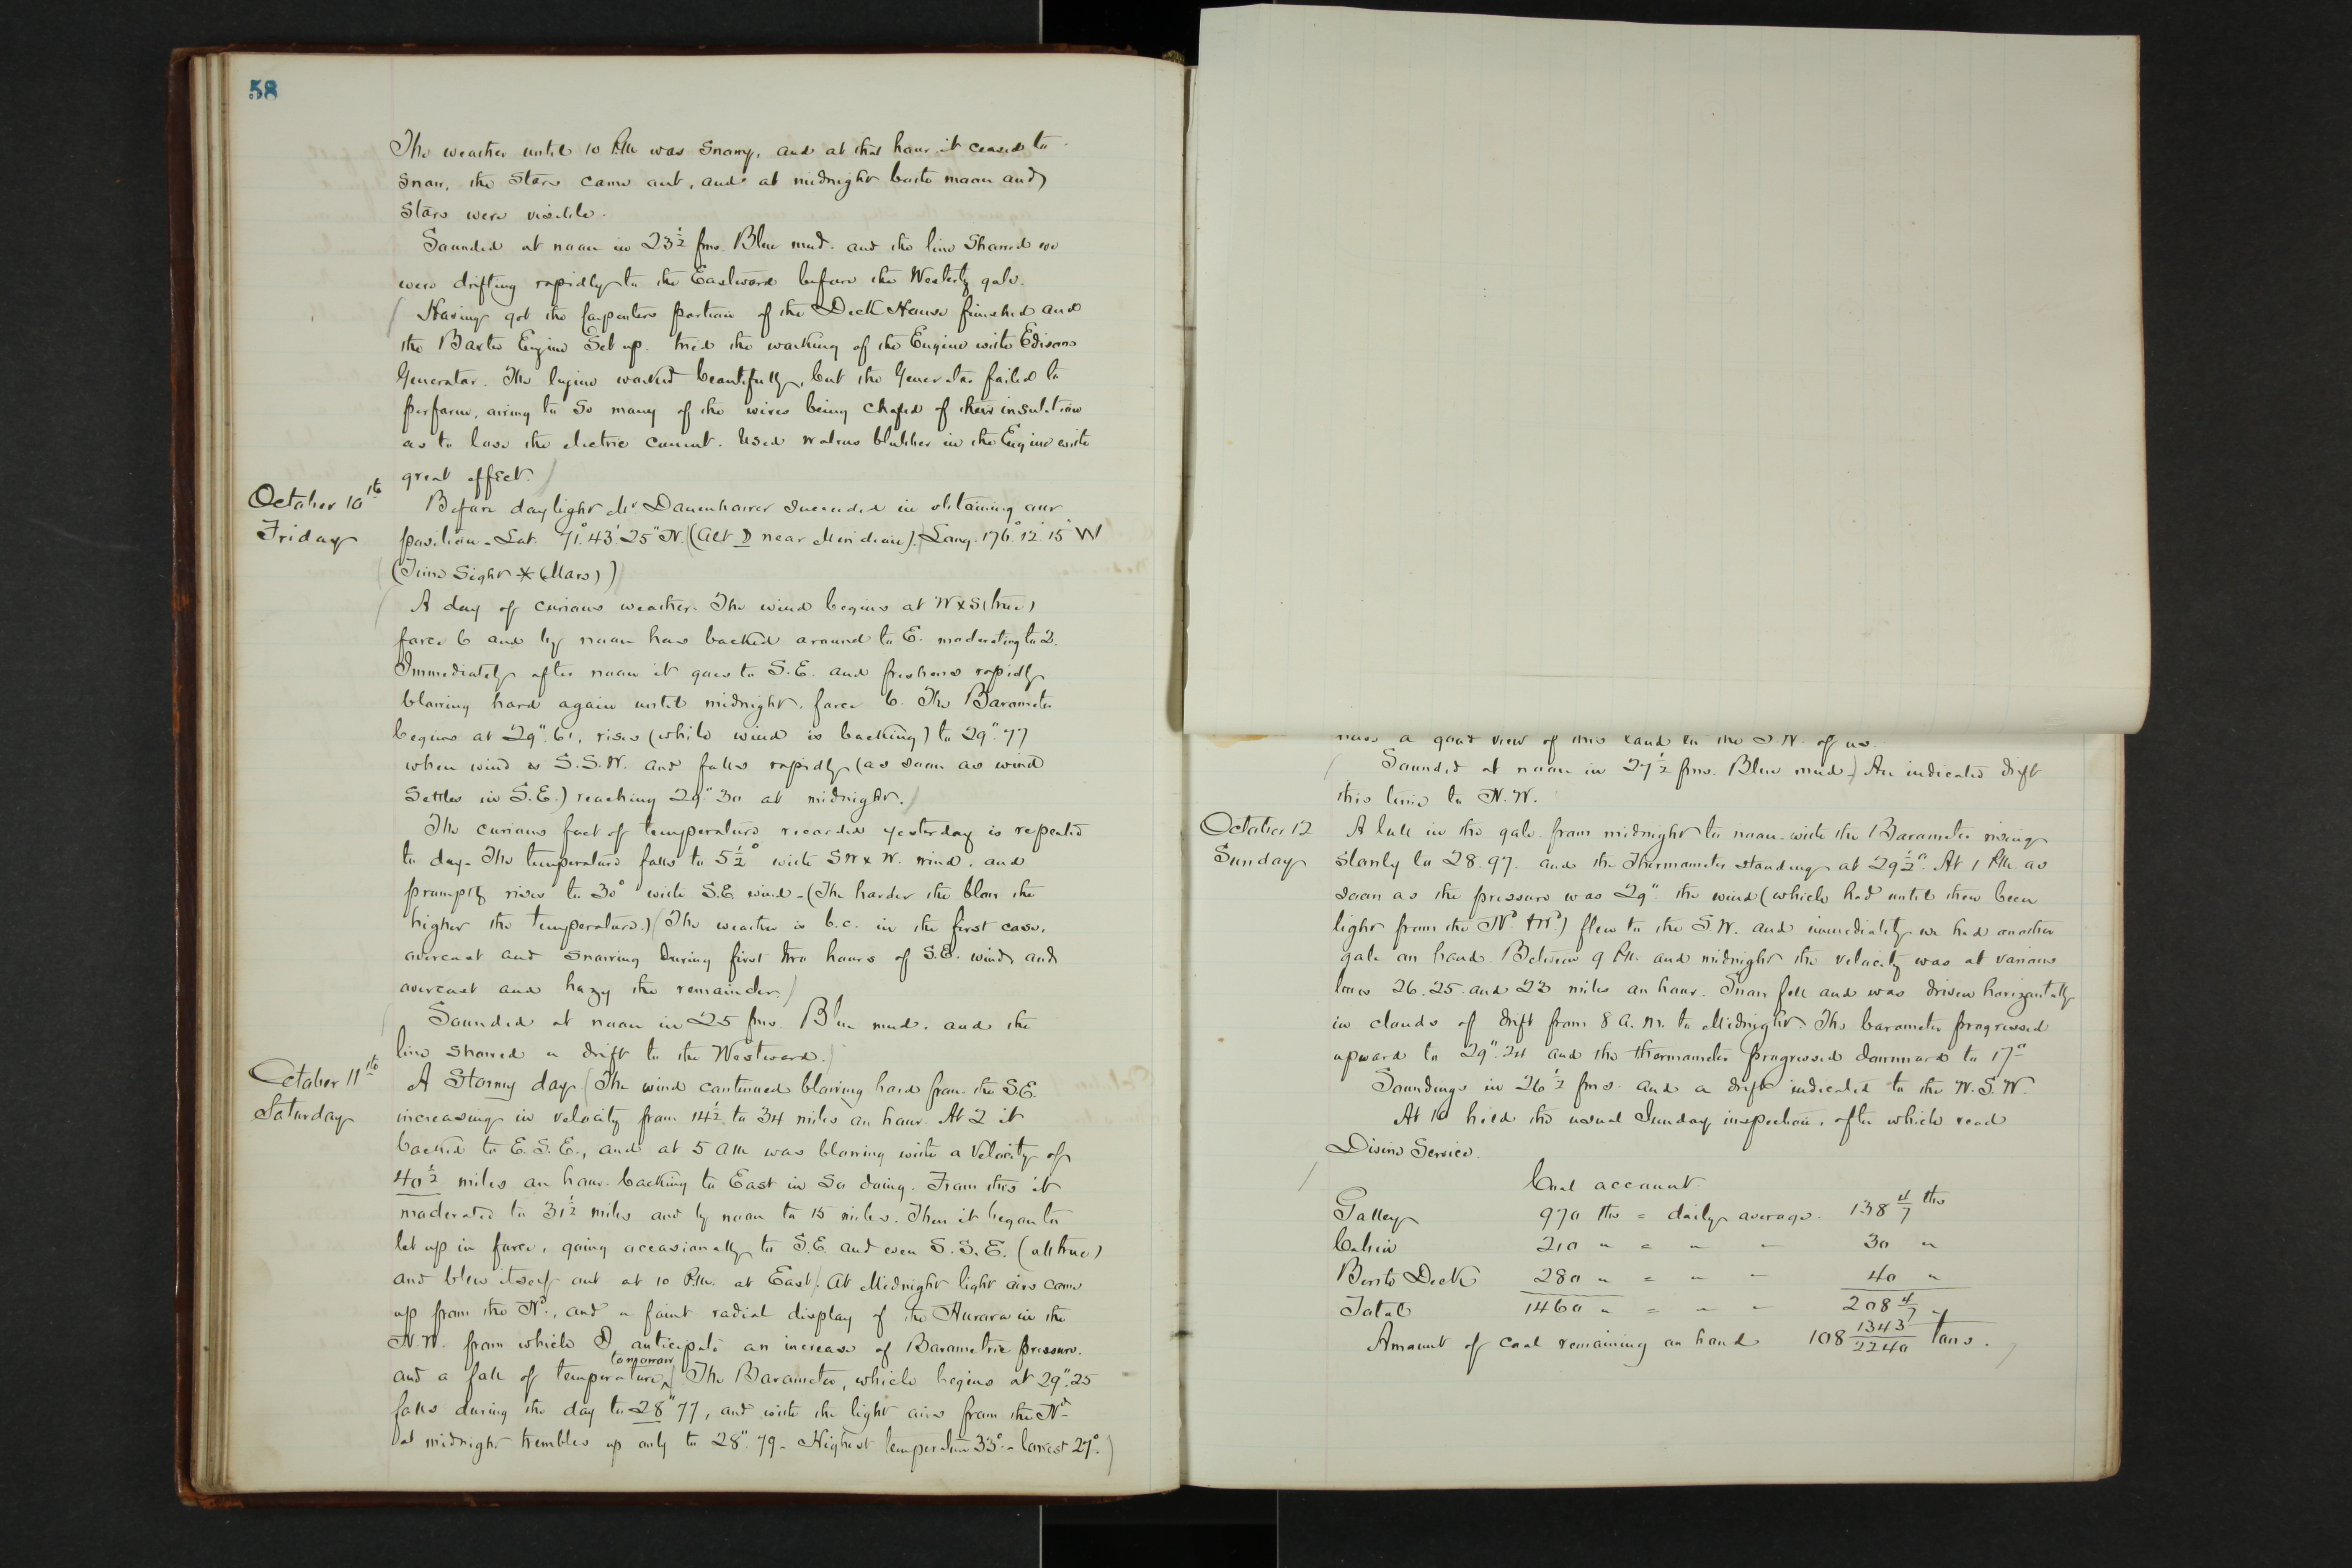 58
The weather until 10 P.M. was snowy, and at that hour it ceased to
snow, the stars came out, and at midnight both moon and
stars were visible.
Sounded at noon in 23½ fms. Blue mud. and the line showed we
were drifting rapidly to the Eastward before the Westerly gale.
(Having got the Carpenters portion of the Deck House finished and
the Baxter Engine Set up. tried the working of the Engine with Edisons
Generator. The Engine worked beautifully, but the Generator failed to
perform, owing to so many of the wires being chafed of their insulation
as to lose the electric current. Used walrus blubber in the Engine with
great effect.)
October 10th
Friday
Before daylight Mr Danenhower succeeded in obtaining our
position - Lat. 71°.43'.25" N. (Alt ☽ near Meridian). Long. 176°.12'.15" W
(Time Sight * (Mars))
A day of curious weather. The wind begins at W x S (true)
force 6 and by noon has backed around to E. moderating to 2.
Immediately after noon it goes to S.E. and freshens rapidly
blowing hard again until midnight. force 6. The Barometer
begins at 29".61, rises (while wind is backing) to 29".77
when wind is S.S.W. and falls rapidly (as soon as wind
settles in S.E.) reaching 29".30 at midnight.)
The curious fact of temperature recorded yesterday is repeated
to day. The temperature falls to 5½° with SW x W. wind. and
promptly rises to 30° with S.E. wind - (The harder the blow the
higher the temperature.) (The weather is b.c. in the first case,
overcast and snowing during first two hours of S.E. wind, and
overcast and hazy the remainder.)
(Sounded at noon in 25 fms. Blue mud. and the
line showed a drift to the Westward.)
October 11th
Saturday
A Stormy day. (The wind continued blowing hard from the S.E.
increasing in velocity from 14½ to 34 miles an hour. At 2 it
backed to E.S.E., and at 5 AM was blowing with a velocity of
40½ miles an hour. backing to East in so doing. From this it
moderated to 31½ miles and by noon to 15 miles. Then it began to
let up in force, going occasionally to S.E. and even S.S.E. (all true)
and blew itself out at 10 P.M. at East). At Midnight light airs came
up from the Nd., and a faint radial display of the Aurora in the
N.W. from which I anticipate an increase of Barometric pressure.
and a fall of temperature tomorrow. (The Barometer, which begins at 29".25
falls during the day to 28".77, and with the light airs from the Nd
at midnight trembles up only to 28".79 - Highest temperature 33° - lowest 27°.)
a good view of this land to the S.W. of us.
(Sounded at noon in 27½ fms. Blue mud.) An indicated drift
this time to N.W.
October 12
Sunday
A lull in the gale from midnight to noon with the Barometer rising
slowly to 28.97. and the Thermometer standing at 29½°. At 1 P.M. as
soon as the pressure was 29" the wind (which had until then been
light from the Nd. & Wd.) flew to the S.W. and immediately we had another
gale on hand. Between 9 P.M. and midnight the velocity was at various
times 26. 25. and 23 miles an hour. Snow fell and was driven horizontally
in clouds of drift from 8 A.M. to Midnight. The barometer progressed
upward to 29".24 and the thermometer progressed downward to 17°
Soundings in 26½ fms. and a drift indicated to the W.S.W.
At 10 held the usual Sunday inspection, after which read
Divine Service.
Coal account
Galley 970 lbs = daily average. 138 4/7 lbs
Cabin 210 " = " " 30 "
Berth Deck 280 " = " " 40 "
Total 1460 " = " " 208 4/7 "
Amount of coal remaining on hand 108 1343/2240 tons.